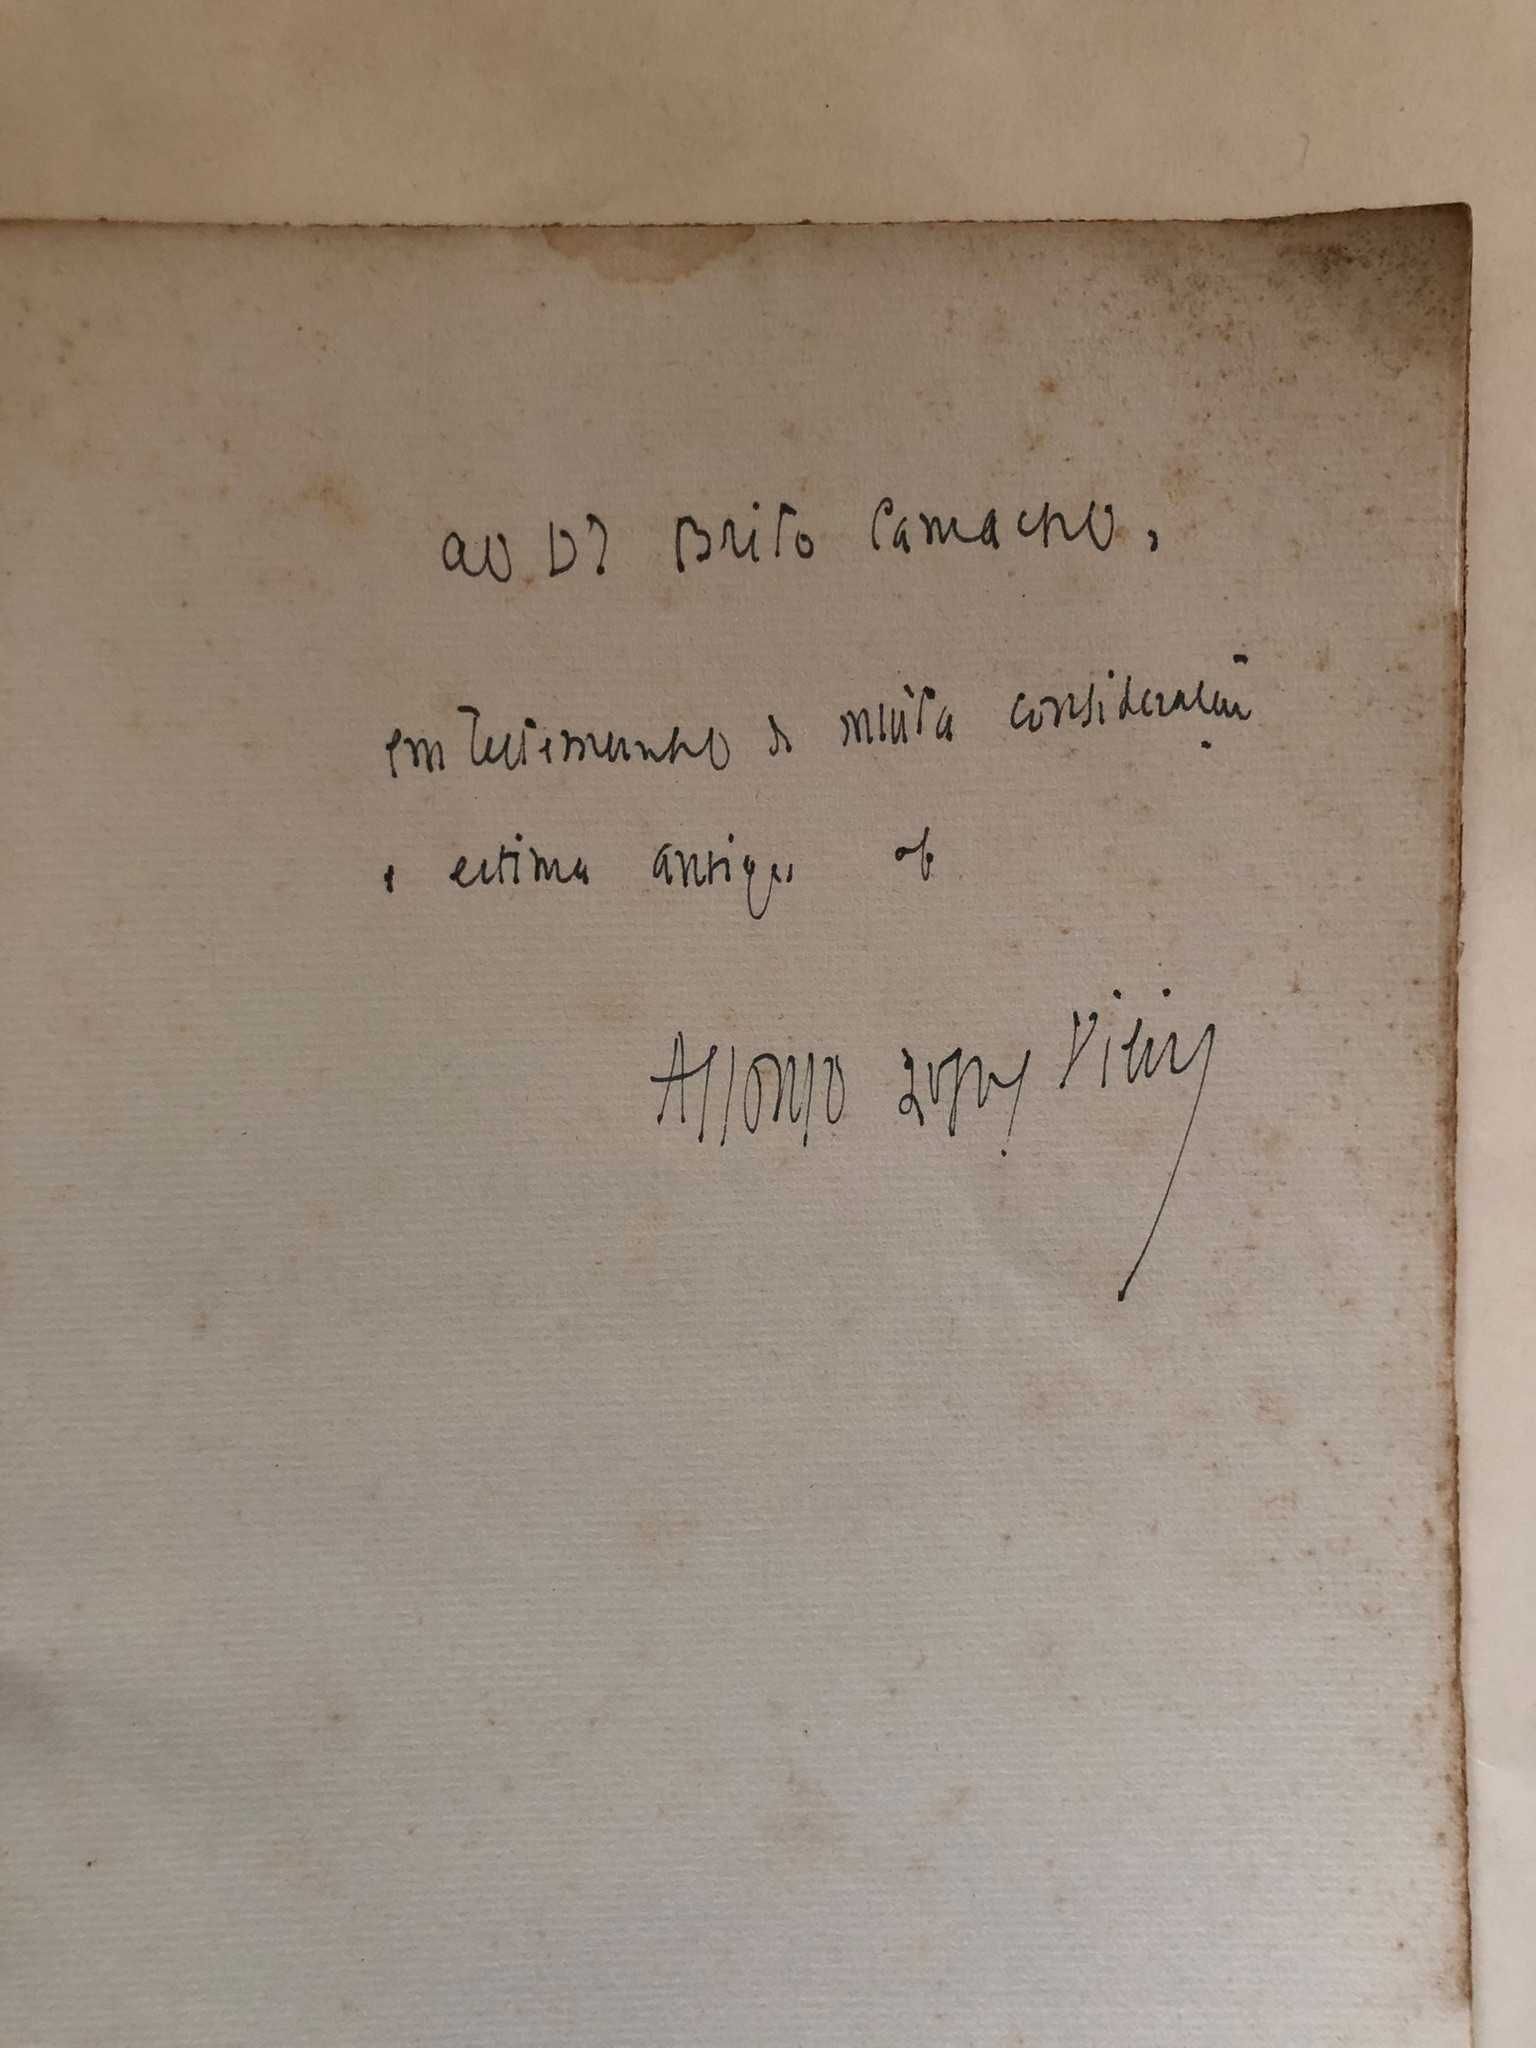 ao Dr Brito Camacho,
em testemunho de muita consideração
e estima antiga of
Affonso Lopes Vieira